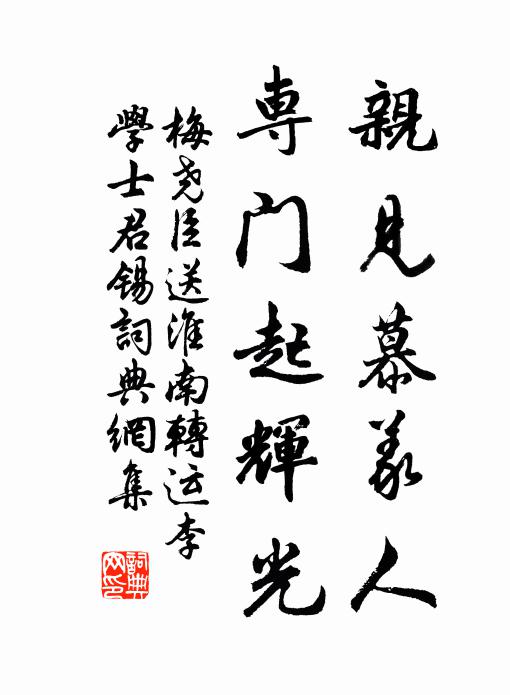 親見慕義人
専門起輝光
梅尧臣送淮南轉运李
學士君錫詞典網集
詞典
网印